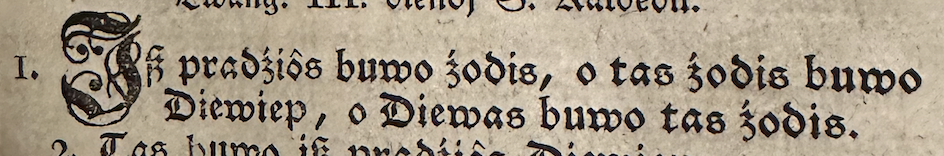 Ewang. III. dienoj S. Kalwedu.
1. Iß pradźiôs buwo źodis, o tas źodis buwo
Diewiep, o Diewas buwo tas źodis.
2. Tas buwo iß pradźiôs Diewiep